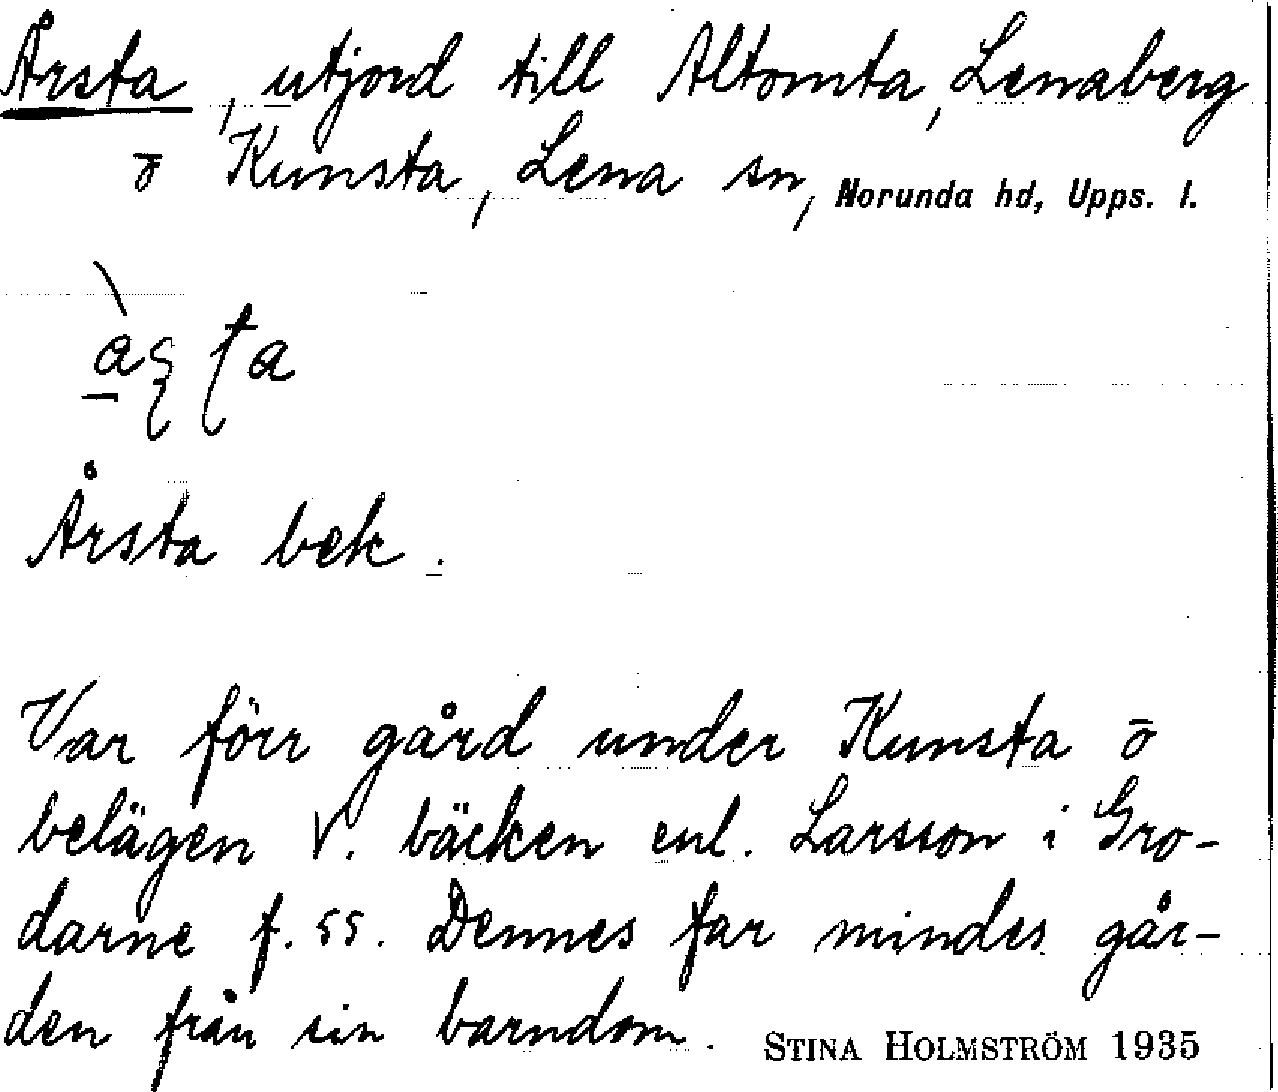 Årsta, utjord till Altomta, Lenaberg
ō Kunsta, Lena sn, Norunda hd, Upps. l.
Årsta bek.
Var förr gård under Kunsta ō
belägen V. bäcken enl. Larsson i Gro-
darne f. 55. Dennes far mindes går-
den från sin barndom. STINA HOLMSTRÖM 1935